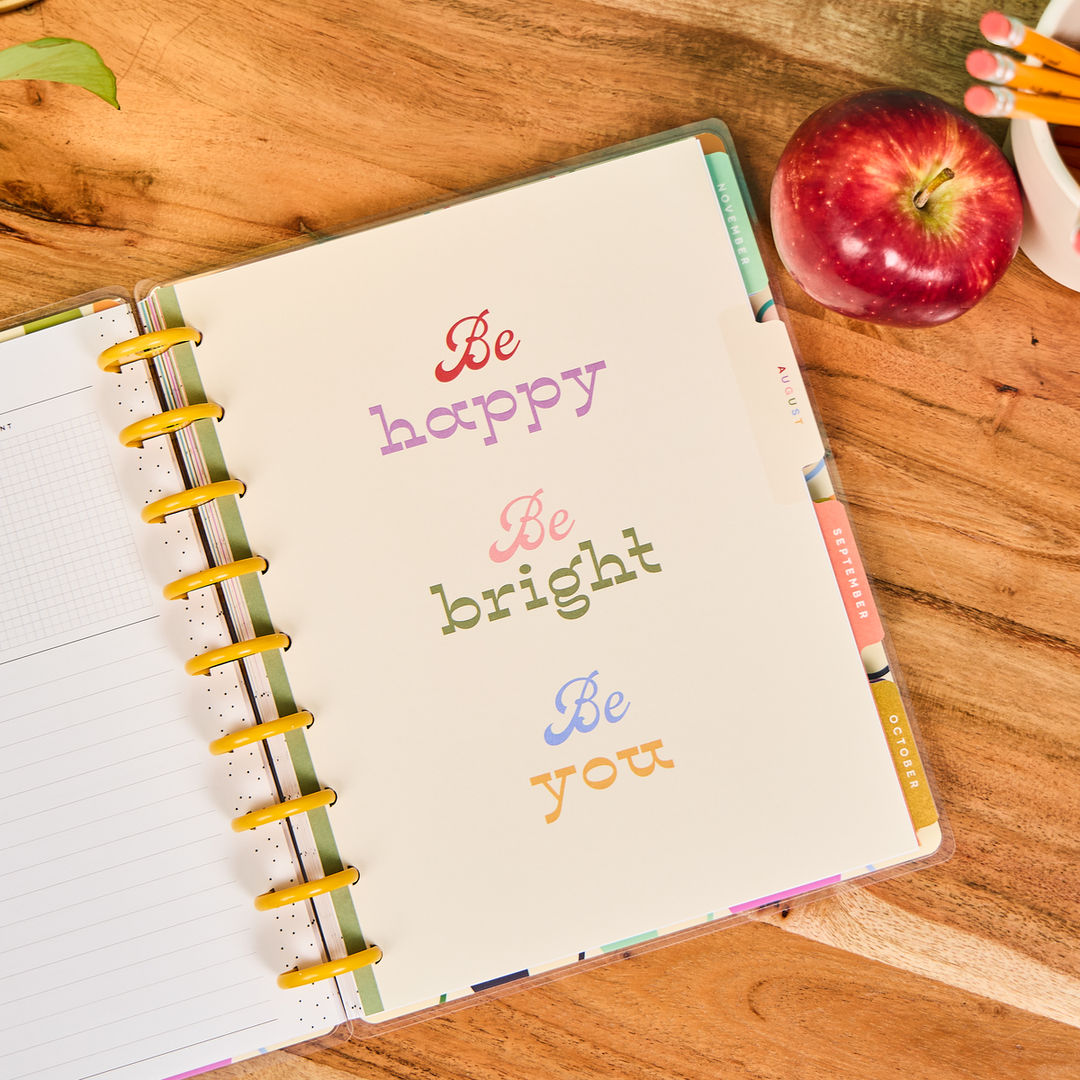 Be
happy
Be
bright
Be
you
NOVEMBER
AUGUST
SEPTEMBER
OCTOBER